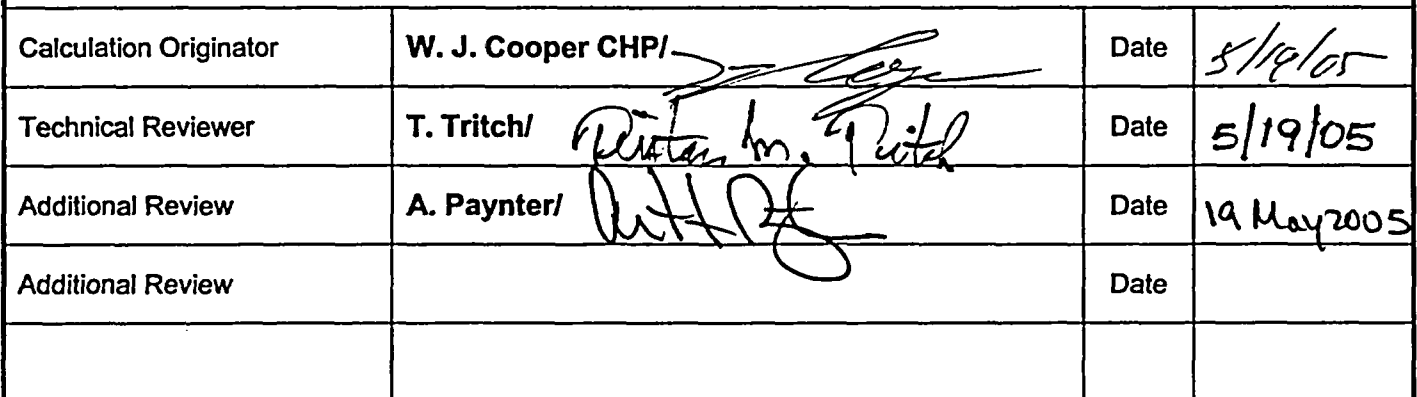 Calculation Originator W. J. Cooper CHP/ Date 5/19/05
Technical Reviewer T. Tritch/ Tristan M. Tritch Date 5/19/05
Additional Review A. Paynter/ Date 19 May 2005
Additional Review Date